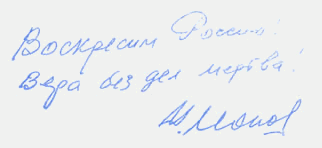 Воскресим Россию!
Вера без дел мертва!